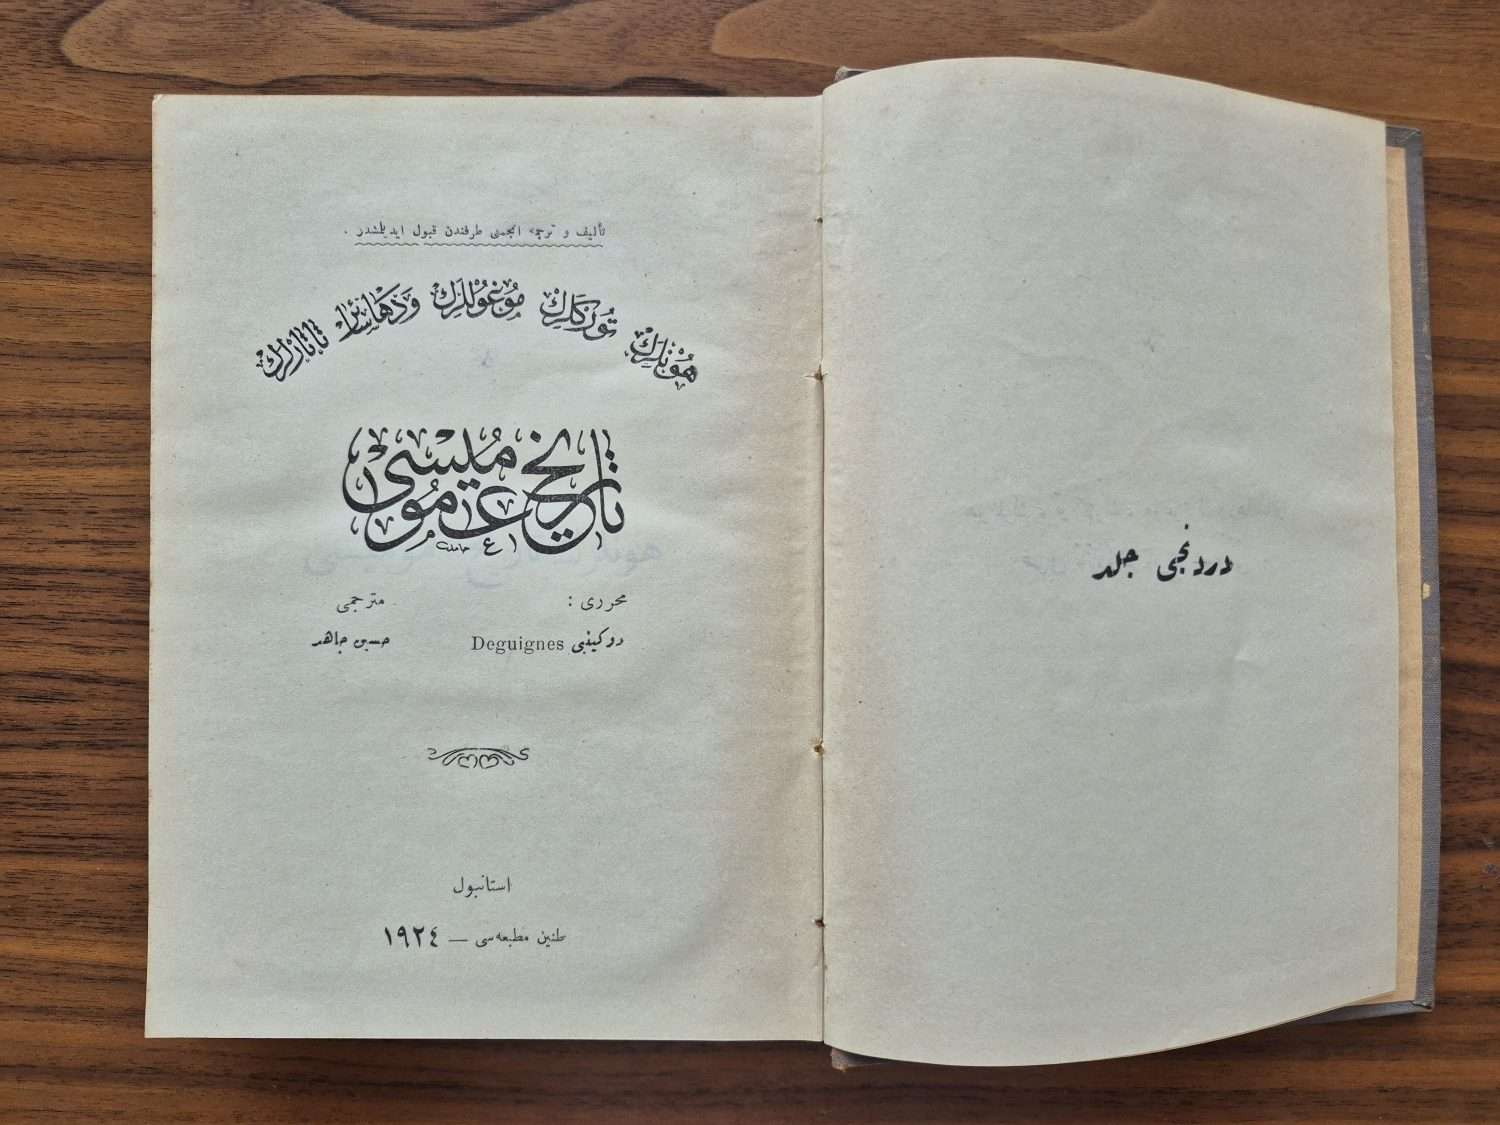 دردنجی جلد
تألیف و ترجمه انجمنی طرفندن قبول ایدیلمشدر .
هونلرك توركلرك موغوللرك و دها سائر تاتارلرك
تاریخ عمومیسی
ع حامد
محرری : مترجمی
دوكینیی Deguignes حسین جاهد
استانبول
طنین مطبعه‌سی — ١٩٢٤